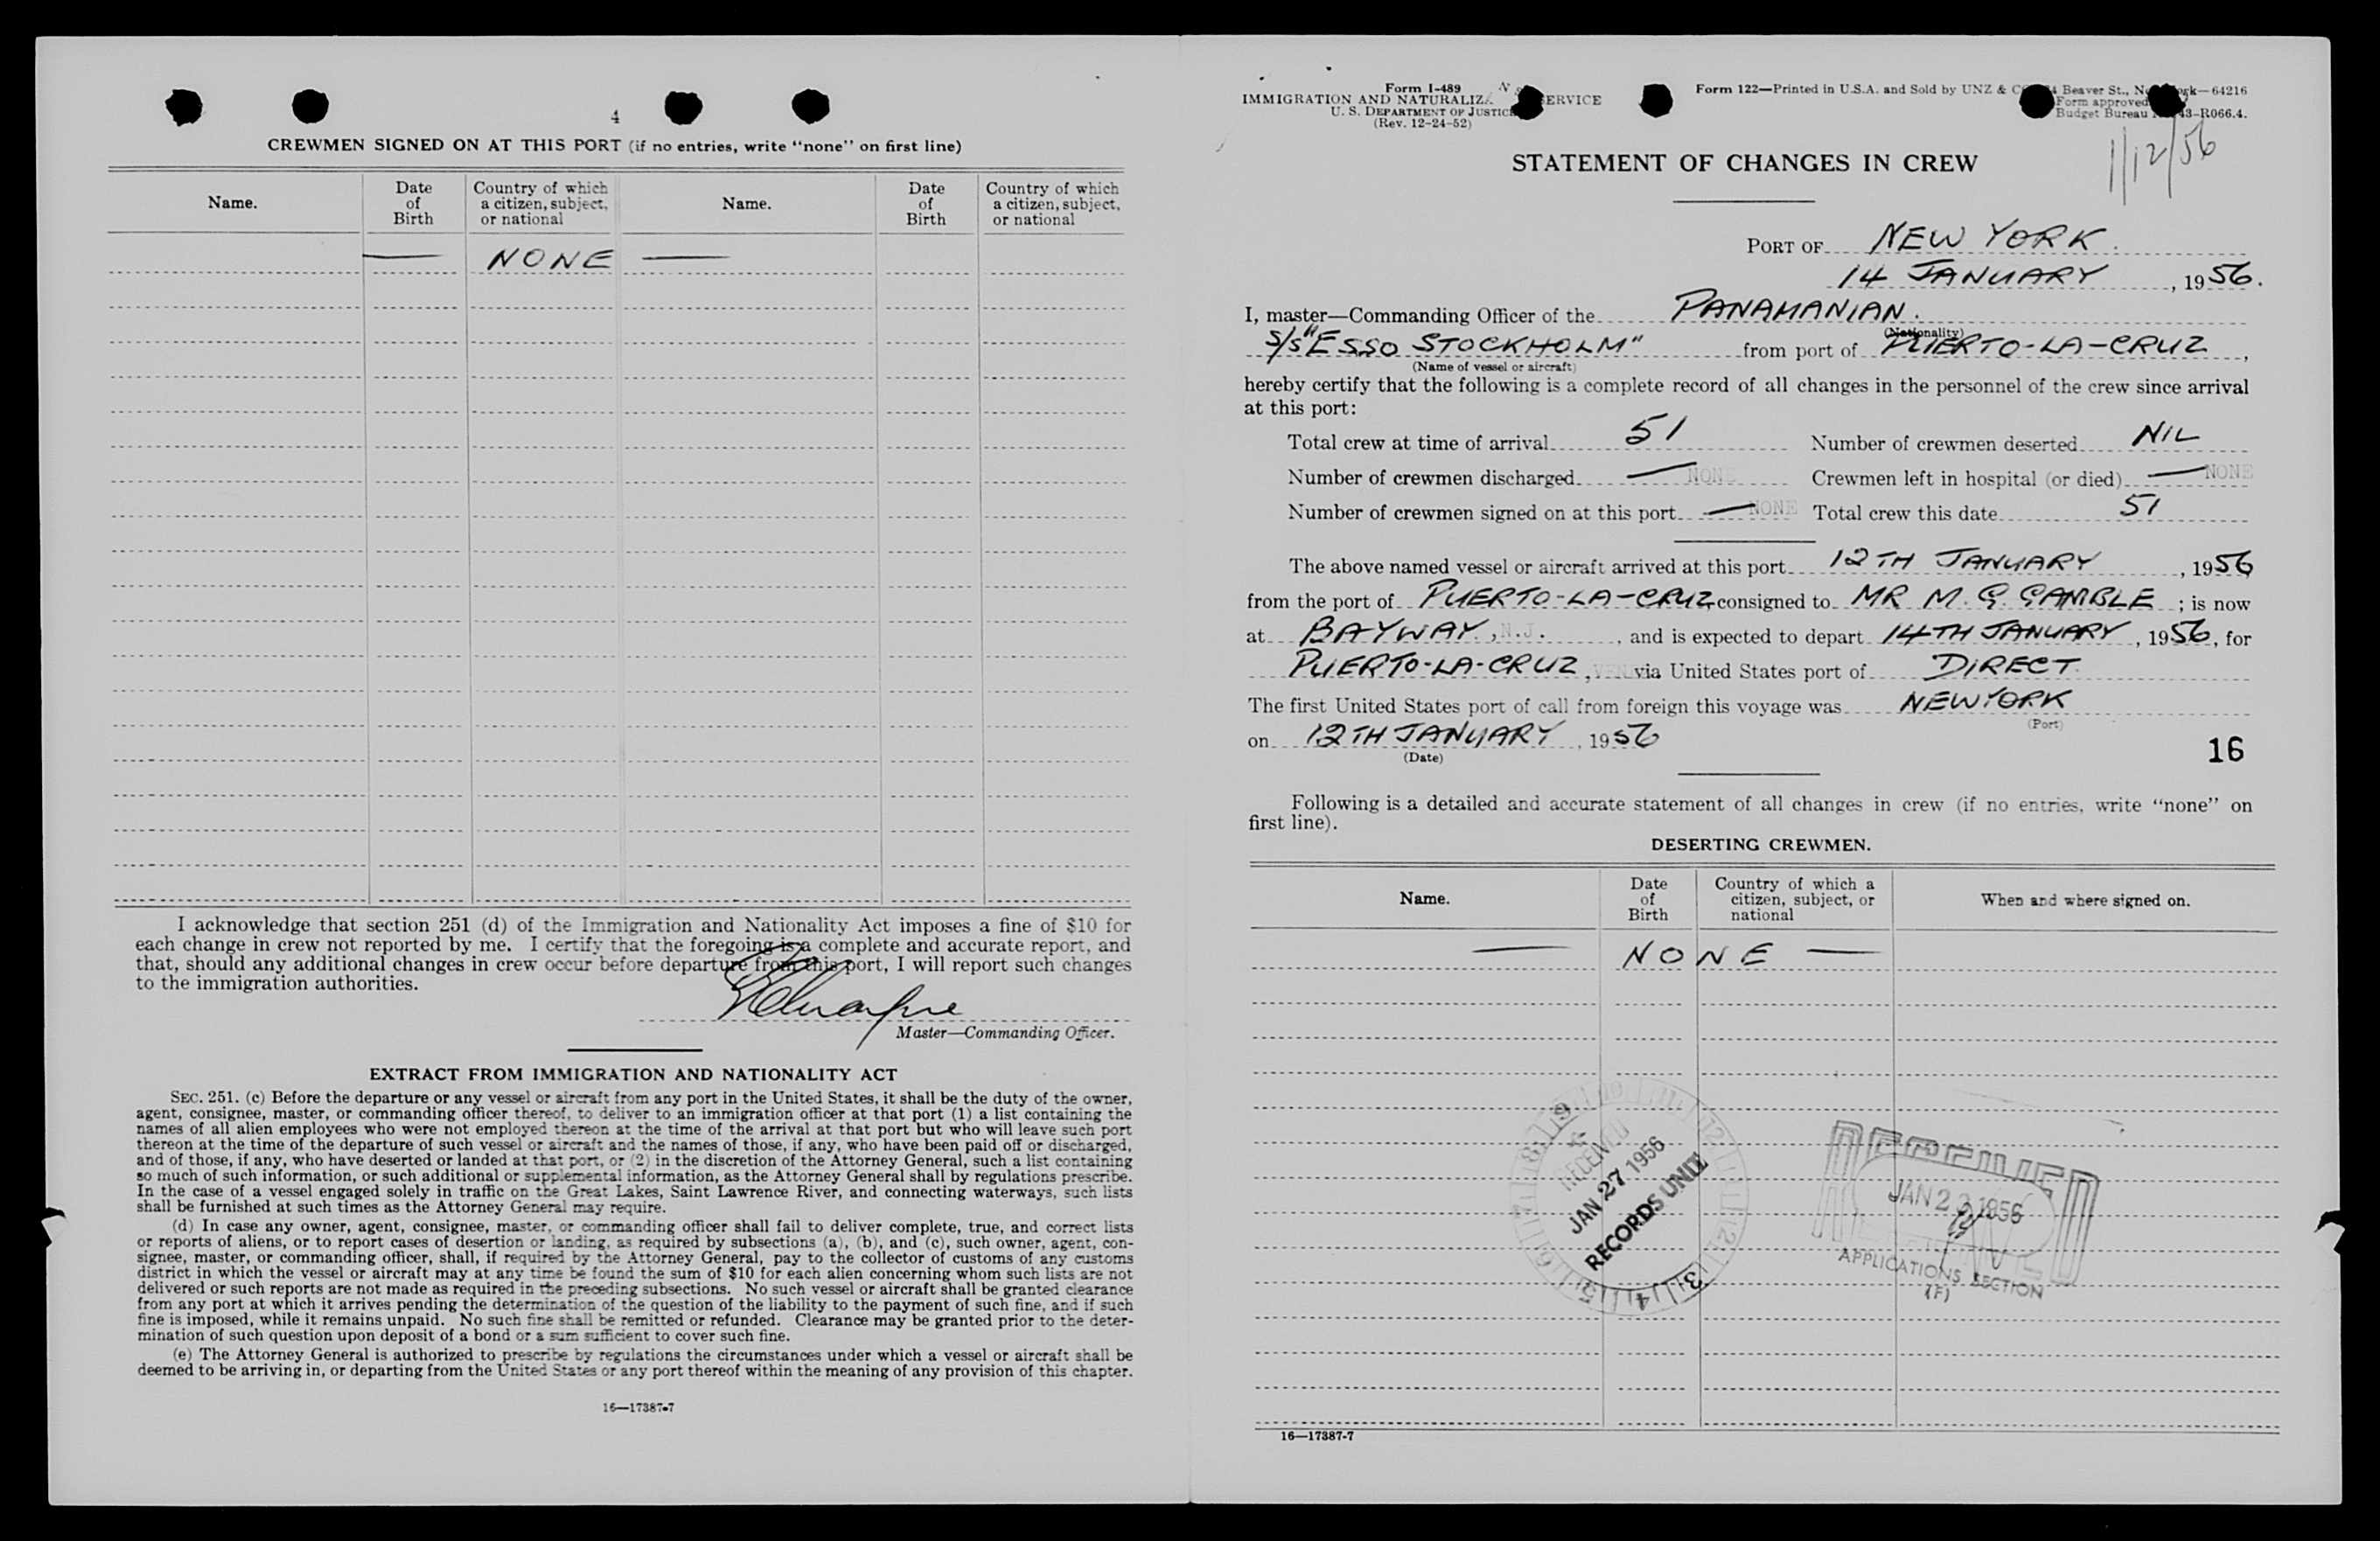 4
CREWMEN SIGNED ON AT THIS PORT (if no entries, write "none" on first line)
Name. Date of Birth Country of which a citizen, subject, or national Name. Date of Birth Country of which a citizen, subject, or national
— NONE —
I acknowledge that section 251 (d) of the Immigration and Nationality Act imposes a fine of $10 for
each change in crew not reported by me. I certify that the foregoing is a complete and accurate report, and
that, should any additional changes in crew occur before departure from this port, I will report such changes
to the immigration authorities.
Master—Commanding Officer.
EXTRACT FROM IMMIGRATION AND NATIONALITY ACT
SEC. 251. (c) Before the departure or any vessel or aircraft from any port in the United States, it shall be the duty of the owner,
agent, consignee, master, or commanding officer thereof, to deliver to an immigration officer at that port (1) a list containing the
names of all alien employees who were not employed thereon at the time of the arrival at that port but who will leave such port
thereon at the time of the departure of such vessel or aircraft and the names of those, if any, who have been paid off or discharged,
and of those, if any, who have deserted or landed at that port, or (2) in the discretion of the Attorney General, such a list containing
so much of such information, or such additional or supplemental information, as the Attorney General shall by regulations prescribe.
In the case of a vessel engaged solely in traffic on the Great Lakes, Saint Lawrence River, and connecting waterways, such lists
shall be furnished at such times as the Attorney General may require.
(d) In case any owner, agent, consignee, master, or commanding officer shall fail to deliver complete, true, and correct lists
or reports of aliens, or to report cases of desertion or landing, as required by subsections (a), (b), and (c), such owner, agent, con-
signee, master, or commanding officer, shall, if required by the Attorney General, pay to the collector of customs of any customs
district in which the vessel or aircraft may at any time be found the sum of $10 for each alien concerning whom such lists are not
delivered or such reports are not made as required in the preceding subsections. No such vessel or aircraft shall be granted clearance
from any port at which it arrives pending the determination of the question of the liability to the payment of such fine, and if such
fine is imposed, while it remains unpaid. No such fine shall be remitted or refunded. Clearance may be granted prior to the deter-
mination of such question upon deposit of a bond or a sum sufficient to cover such fine.
(e) The Attorney General is authorized to prescribe by regulations the circumstances under which a vessel or aircraft shall be
deemed to be arriving in, or departing from the United States or any port thereof within the meaning of any provision of this chapter.
16—17387-7
Form I-489
IMMIGRATION AND SERVICE
U. S. DEPARTMENT OF
(Rev. 12-24-52)
Form 122—Printed in U.S.A. and Sold by UNZ & Beaver St., 64216
Form approved
Budget Bureau 43-R066.4.
1/12/56
STATEMENT OF CHANGES IN CREW
PORT OF NEW YORK.
14 JANUARY, 1956.
I, master—Commanding Officer of the PANAMANIAN.
(Nationality)
S/S "ESSO STOCKHOLM" from port of PUERTO-LA-CRUZ,
(Name of vessel or aircraft)
hereby certify that the following is a complete record of all changes in the personnel of the crew since arrival
at this port:
Total crew at time of arrival 51 Number of crewmen deserted NIL
Number of crewmen discharged — NONE Crewmen left in hospital (or died) — NONE
Number of crewmen signed on at this port — NONE Total crew this date 51
The above named vessel or aircraft arrived at this port 12TH JANUARY, 1956
from the port of PUERTO-LA-CRUZ consigned to MR M. G. GAMBLE ; is now
at BAYWAY, N.J. , and is expected to depart 14TH JANUARY, 1956, for
PUERTO-LA-CRUZ, VEN via United States port of DIRECT
The first United States port of call from foreign this voyage was NEW YORK
(Port)
on 12TH JANUARY, 1956
(Date)
16
Following is a detailed and accurate statement of all changes in crew (if no entries, write "none" on
first line).
DESERTING CREWMEN.
Name. Date of Birth Country of which a citizen, subject, or national When and where signed on.
— NONE —
RECEIVED
JAN 27 1956
RECORDS UNIT
RECEIVED
APPLICATIONS SECTION
(F)
16—17387-7